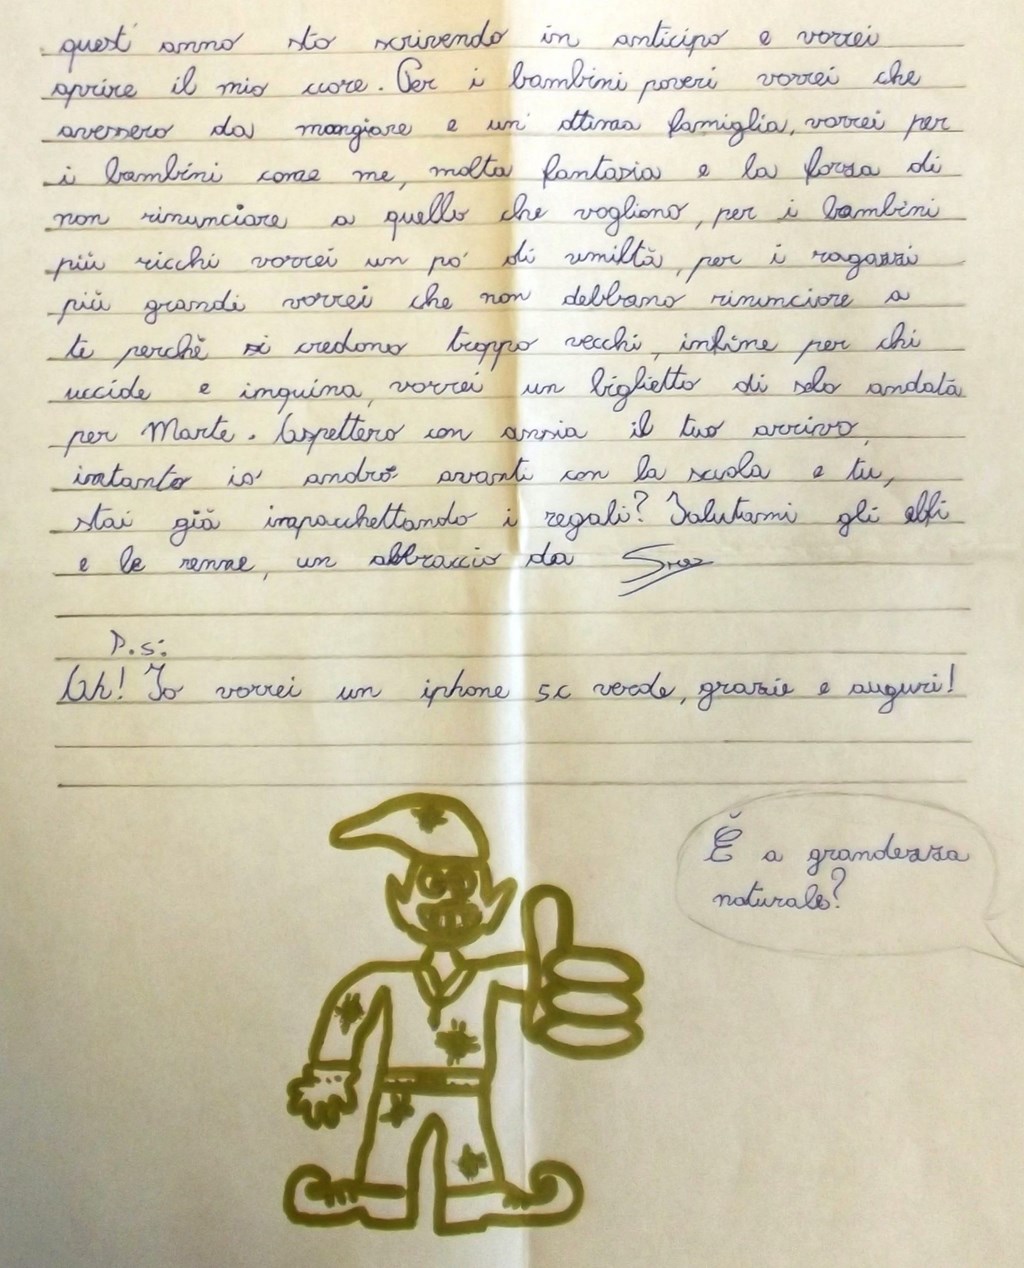 quest' anno sto scrivendo in anticipo e vorrei
aprire il mio cuore. Per i bambini poveri vorrei che
avessero da mangiare e un' ottima famiglia, vorrei per
i bambini come me, molta fantasia e la forza di
non rinunciare a quello che vogliono, per i bambini
più ricchi vorrei un po' di umiltà, per i ragazzi
più grandi vorrei che non debbano rinunciare a
te perchè si credono troppo vecchi, infine per chi
uccide e inquina, vorrei un biglietto di solo andata
per Marte. Aspettero con ansia il tuo arrivo,
intanto io andrò avanti con la scuola e tu,
stai già impacchettando i regali? Salutami gli elfi
e le renne, un abbraccio da
P.s:
Ah! Io vorrei un iphone 5c verde, grazie e auguri!
È a grandezza
naturale?